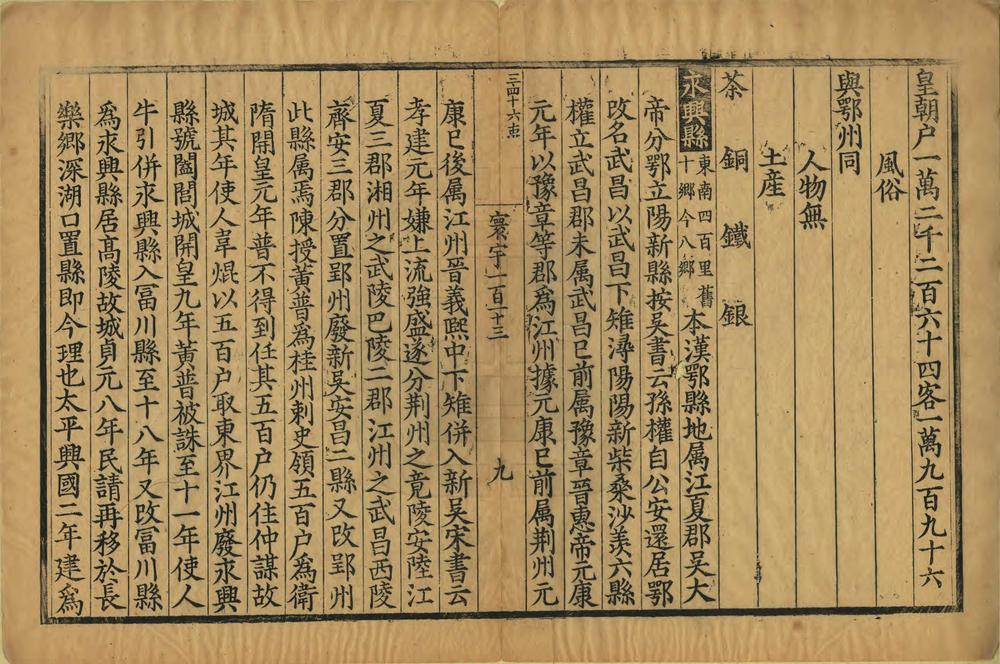 皇朝户一萬二千二百六十四客一萬九百九十六
風俗
與鄂州同
人物無
土産
茶 銅 鐵 銀
永興縣東南四百里舊十鄉今八鄉本漢鄂縣地属江夏郡吴大
帝分鄂立陽新縣按吴書云孫權自公安還居鄂
改名武昌以武昌下雉潯陽陽新柴桑沙羡六縣
權立武昌郡未属武昌已前属豫章晉惠帝元康
元年以豫章等郡爲江州據元康已前属荆州元
三四十六束
寰宇一百十三
九
康已後属江州晉義熙中下雉併入新吴宋書云
孝建元年嫌上流強盛遂分荆州之竟陵安陸江
夏三郡湘州之武陵巴陵二郡江州之武昌西陵
齊安三郡分置郢州廢新吴安昌二縣又改郢州
此縣属焉陳授黄普爲桂州刺史領五百户爲衛
隋開皇元年普不得到任其五百户仍住仲謀故
城其年使人韋焜以五百户取東界江州廢永興
縣號闔閭城開皇九年黄普被誅至十一年使人
牛引併永興縣入冨川縣至十八年又改冨川縣
爲永興縣居髙陵故城貞元八年民請再移於長
樂鄉深湖口置縣即今理也太平興國二年建爲